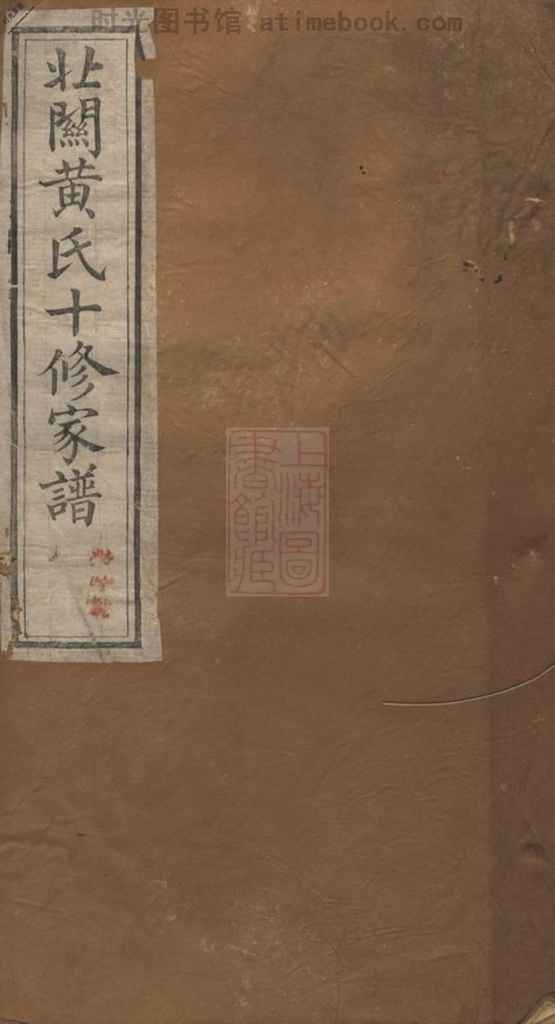 时光图书馆 atimebook.com
北關黃氏十修家譜
上海圖
書館藏